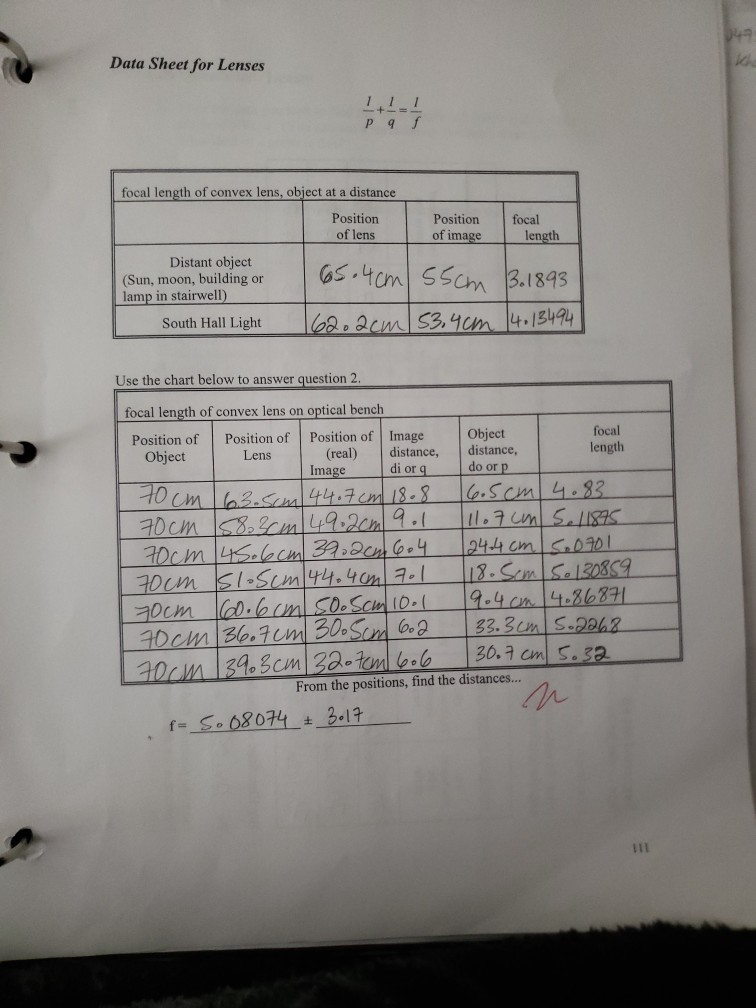 Data Sheet for Lenses
1/p + 1/q = 1/f
focal length of convex lens, object at a distance
Position of lens Position of image focal length
Distant object (Sun, moon, building or lamp in stairwell) 65.4cm 55cm 3.1893
South Hall Light 62.2cm 53.4cm 4.13494
Use the chart below to answer question 2.
focal length of convex lens on optical bench
Position of Object Position of Lens Position of (real) Image Image distance, di or q Object distance, do or p focal length
70cm 63.5cm 44.7cm 18.8 6.5cm 4.83
70cm 58.3cm 49.2cm 9.1 11.7cm 5.11895
70cm 45.6cm 39.2cm 6.4 24.4cm 5.0701
70cm 51.5cm 44.4cm 7.1 18.5cm 5.130859
70cm 60.6cm 50.5cm 10.1 9.4cm 4.86871
70cm 36.7cm 30.5cm 6.2 33.3cm 5.2268
70cm 39.3cm 32.7cm 6.6 30.7cm 5.32
From the positions, find the distances...
f= 5.08074 ± 3.17
111